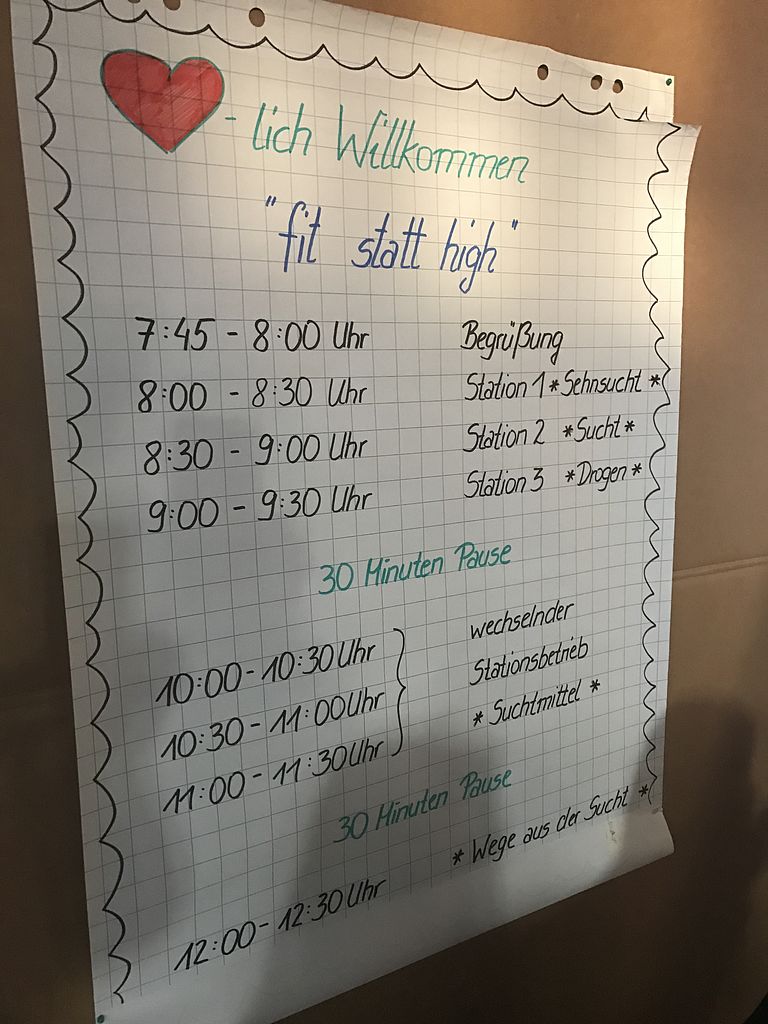 -lich Willkommen
"fit statt high"
7:45 - 8:00 Uhr Begrüßung
8:00 - 8:30 Uhr Station 1 *Sehnsucht*
8:30 - 9:00 Uhr Station 2 *Sucht*
9:00 - 9:30 Uhr Station 3 *Drogen*
30 Minuten Pause
10:00 - 10:30 Uhr wechselnder
10:30 - 11:00 Uhr Stationsbetrieb
11:00 - 11:30 Uhr * Suchtmittel *
30 Minuten Pause
12:00 - 12:30 Uhr * Wege aus der Sucht *